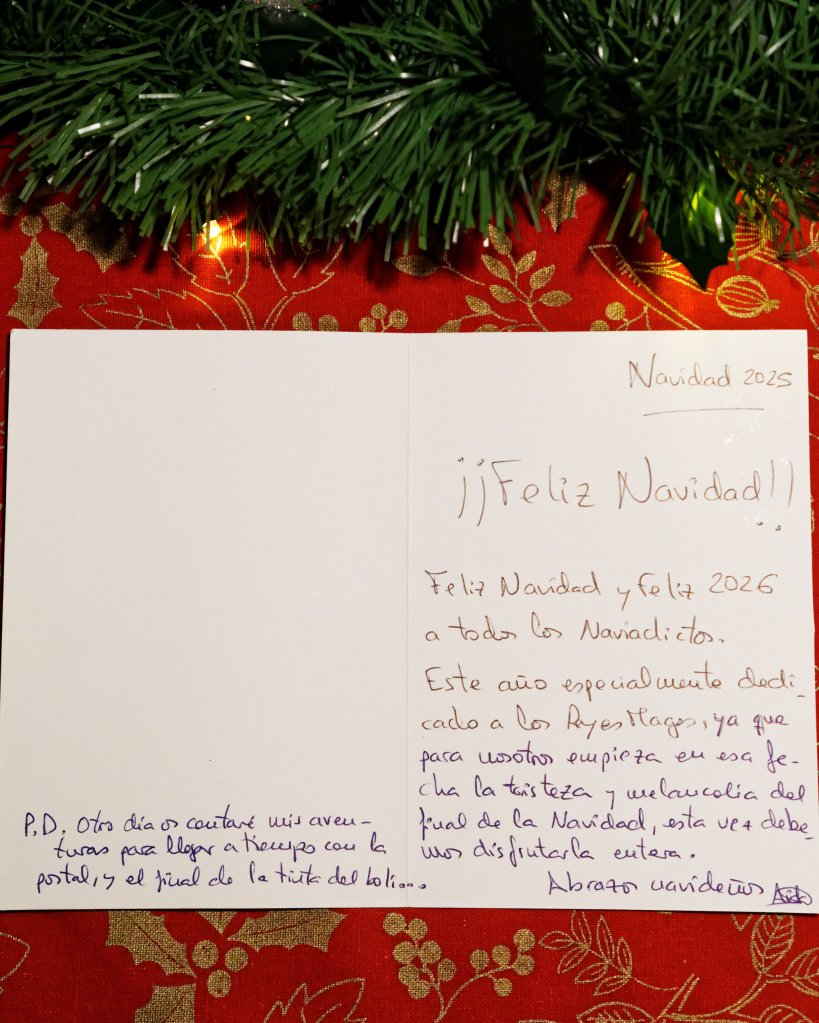 Navidad 2025
¡¡Feliz Navidad!!
Feliz Navidad y feliz 2026
a todos los Naviadictos.
Este año especialmente dedi-
cado a los Reyes Magos, ya que
para nosotros empieza en esa fe-
cha la tristeza y melancolia del
final de la Navidad, esta vez debe-
mos disfrutarla entera.
Abrazos navideños
P.D. Otro día os contaré mis aven-
turas para llegar a tiempo con la
postal, y el final de la tinta del boli...